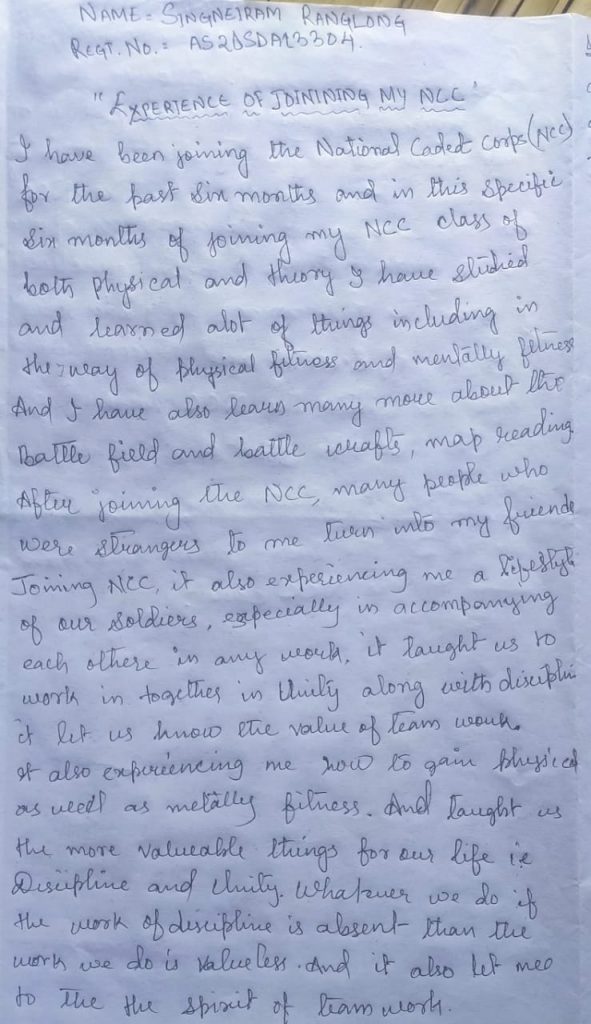 NAME = SINGNEIRAM RANGLONG
REGT. No. = AS20SDA13304.
"EXPERIENCE OF JOINING MY NCC"
I have been joining the National Cadet Corps (NCC)
for the past six months and in this specific
six months of joining my NCC class of
both physical and theory I have studied
and learned alot of things including in
the way of physical fitness and mentally fitness
And I have also learn many more about the
battle field and battle crafts, map reading.
After joining the NCC, many people who
were strangers to me turn into my friends
Joining NCC, it also experiencing me a lifestyle
of our soldiers, especially in accompanying
each othere in any work, it taught us to
work in together in Unity along with disciplin
it let us know the value of team work.
It also experiencing me how to gain physical
as well as metally fitness. And taught us
the more valueable things for our life i.e
Discipline and Unity. Whatever we do if
the work of discipline is absent than the
work we do is valueless. And it also let mee
to the the spirit of team work.